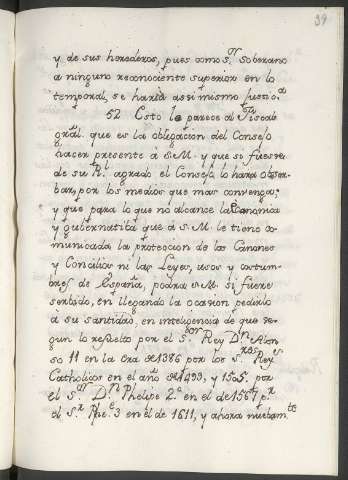 39
y de sus herederos, pues como S.ᵒʳ soberano
a ninguno reconociente superior en lo
temporal, se haria assi mismo justic.ᵃ
52 Esto le parece al Fiscal
gral. que es la obligacion del Consejo
hacer presente a S.M. y que si fuese
de su R.ˡ agrado el Consejo lo hará obser-
bar, por los medios que mas convenga;
y que para lo que no alcance la Economica
y gubernatiba que a S.M. le tiene co-
municada la proteccion de los Canones
y Concilios ni las Leyes, usos y costum-
bres de España, podra S.M. si fuere
serbido, en llegando la ocasion pedirlo
a su santidad, en inteligencia de que se-
gun lo resuelto por el S.ᵒʳ Rey D.ⁿ Alon
so 11 en la era de 1386 por los S.ʳᵉˢ Reyˢ
Catholicos en el año de 1499, y 1505. por
el S.ᵒʳ D.ⁿ Phelipe 2.º en el de 1567 p.ʳ
el S.ʳ Phe.ᵉ 3 en el de 1611, y ahora nuebam.ᵗᵉ